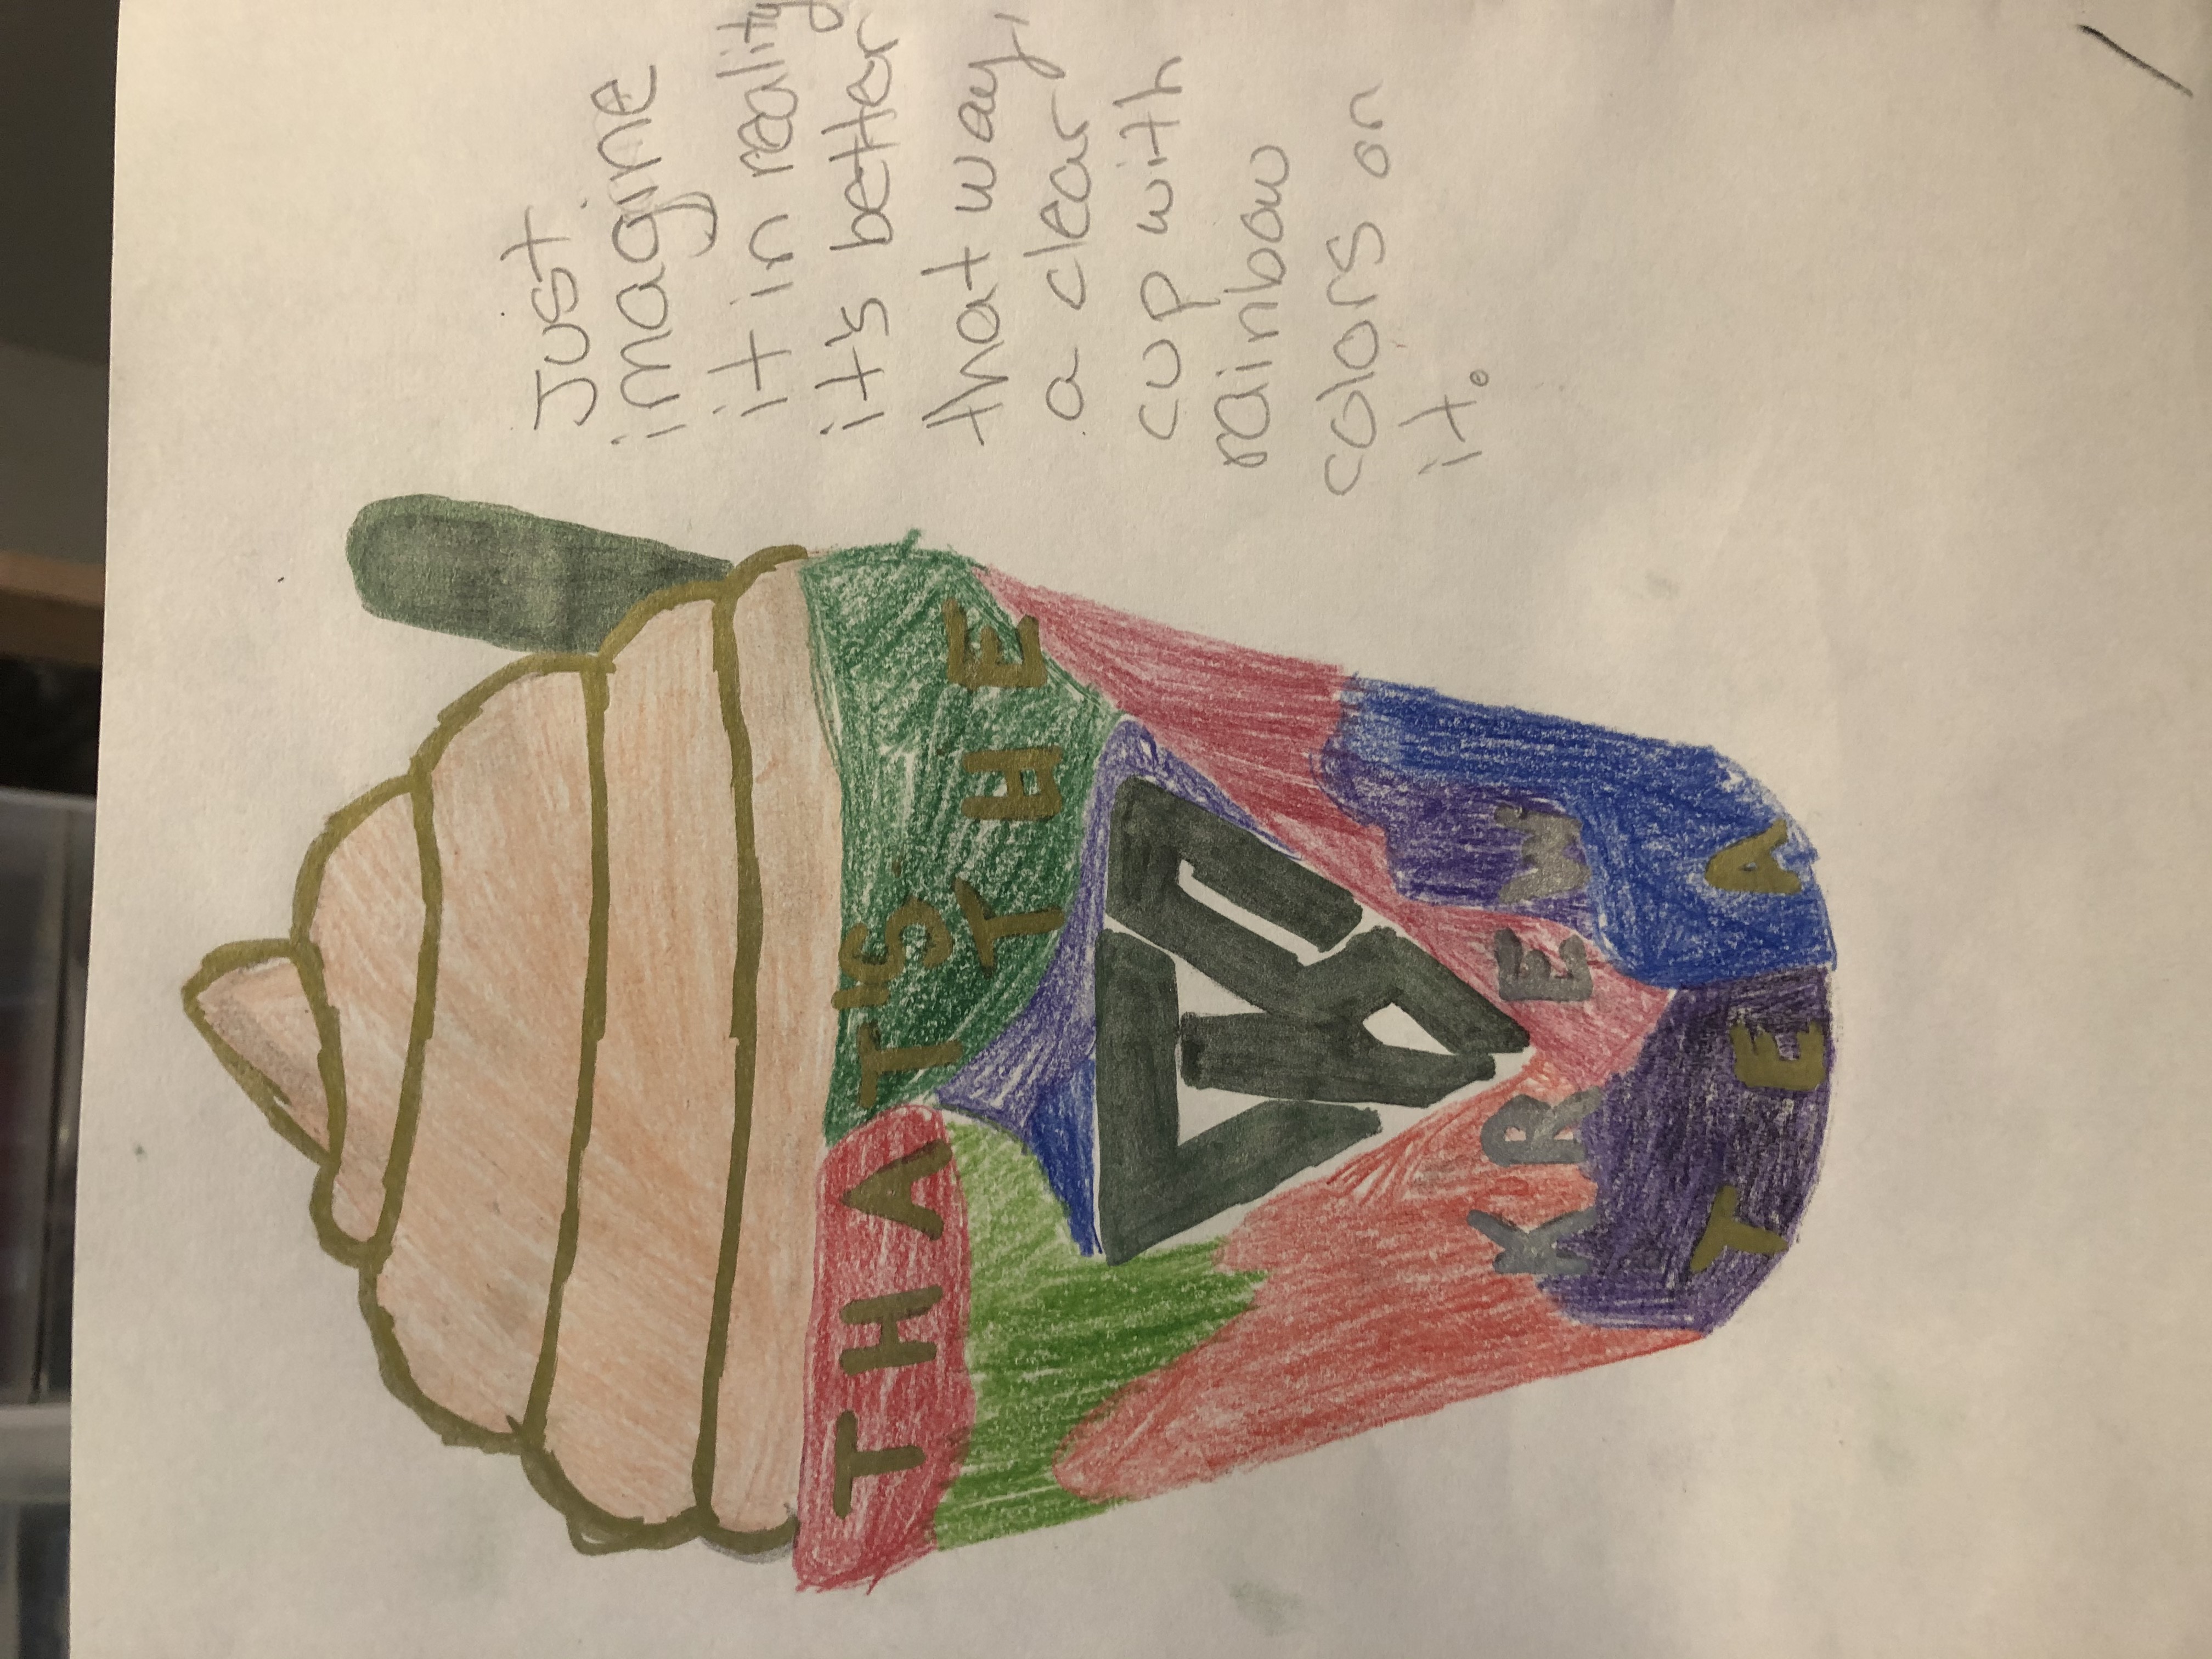 THAT'S
THE
K
KREW
TEA
Just
imagine
it in reality
it's better
that way,
a clear
cup with
rainbow
colors on
it.